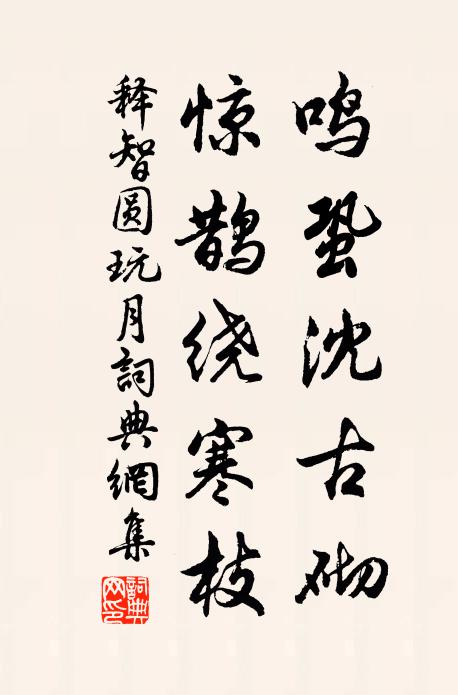 鸣蛩沈古砌
惊鹊绕寒枝
释智圆玩月詞典網集
詞典网印